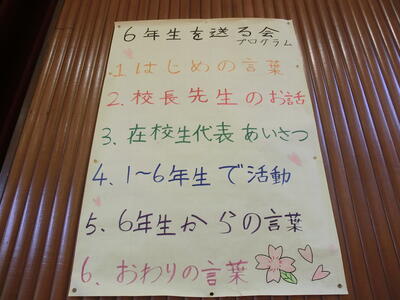 6年生を送る会
プログラム
1はじめの言葉
2.校長先生のお話
3.在校生代表あいさつ
4.1~6年生で活動
5.6年生からの言葉
6.おわりの言葉